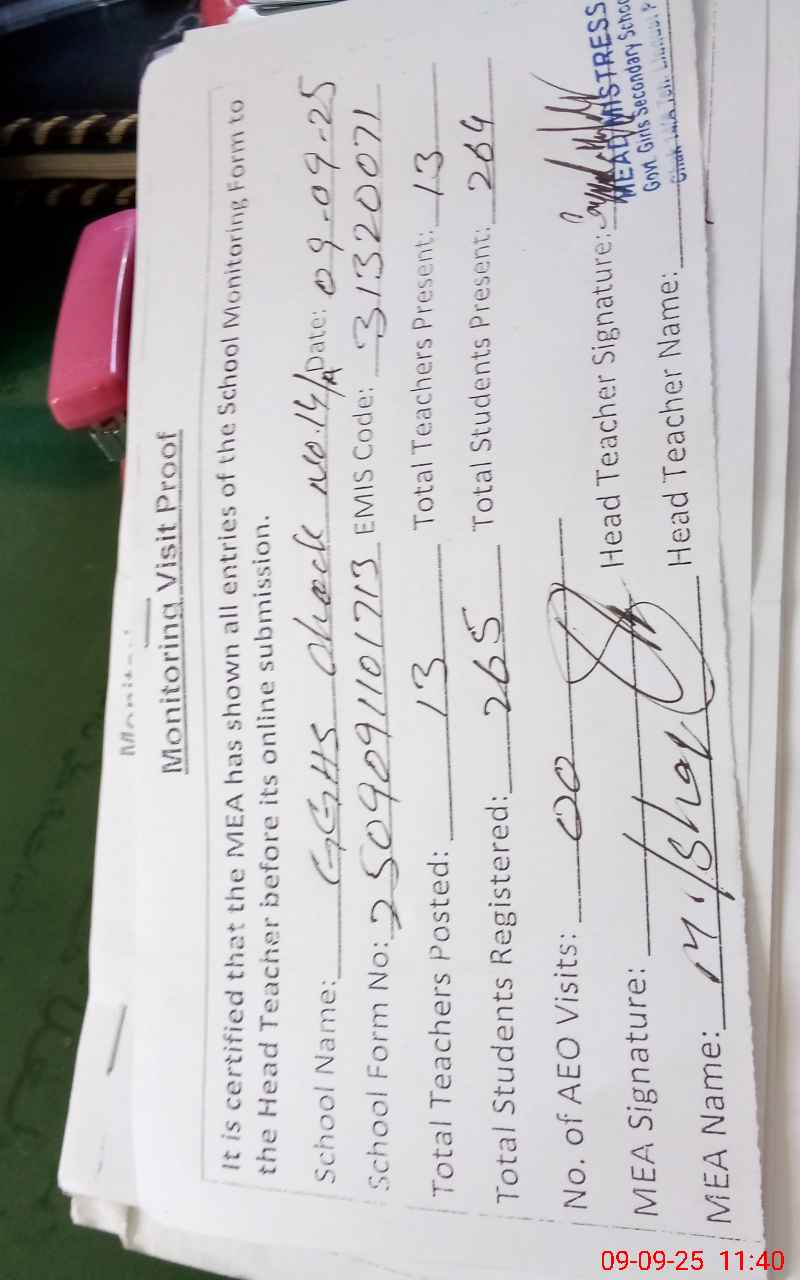 Monitoring Visit Proof
It is certified that the MEA has shown all entries of the School Monitoring Form to
the Head Teacher before its online submission.
School Name: GGHS Chack No.14/A Date: 09-09-25
School Form No: 25090911101713 EMIS Code: 31320071
Total Teachers Posted: 13 Total Teachers Present: 13
Total Students Registered: 265 Total Students Present: 264
No. of AEO Visits: 00
MEA Signature: Head Teacher Signature:
HEAD MISTRESS
Govt. Girls Secondary School
MEA Name: Head Teacher Name:
09-09-25 11:40